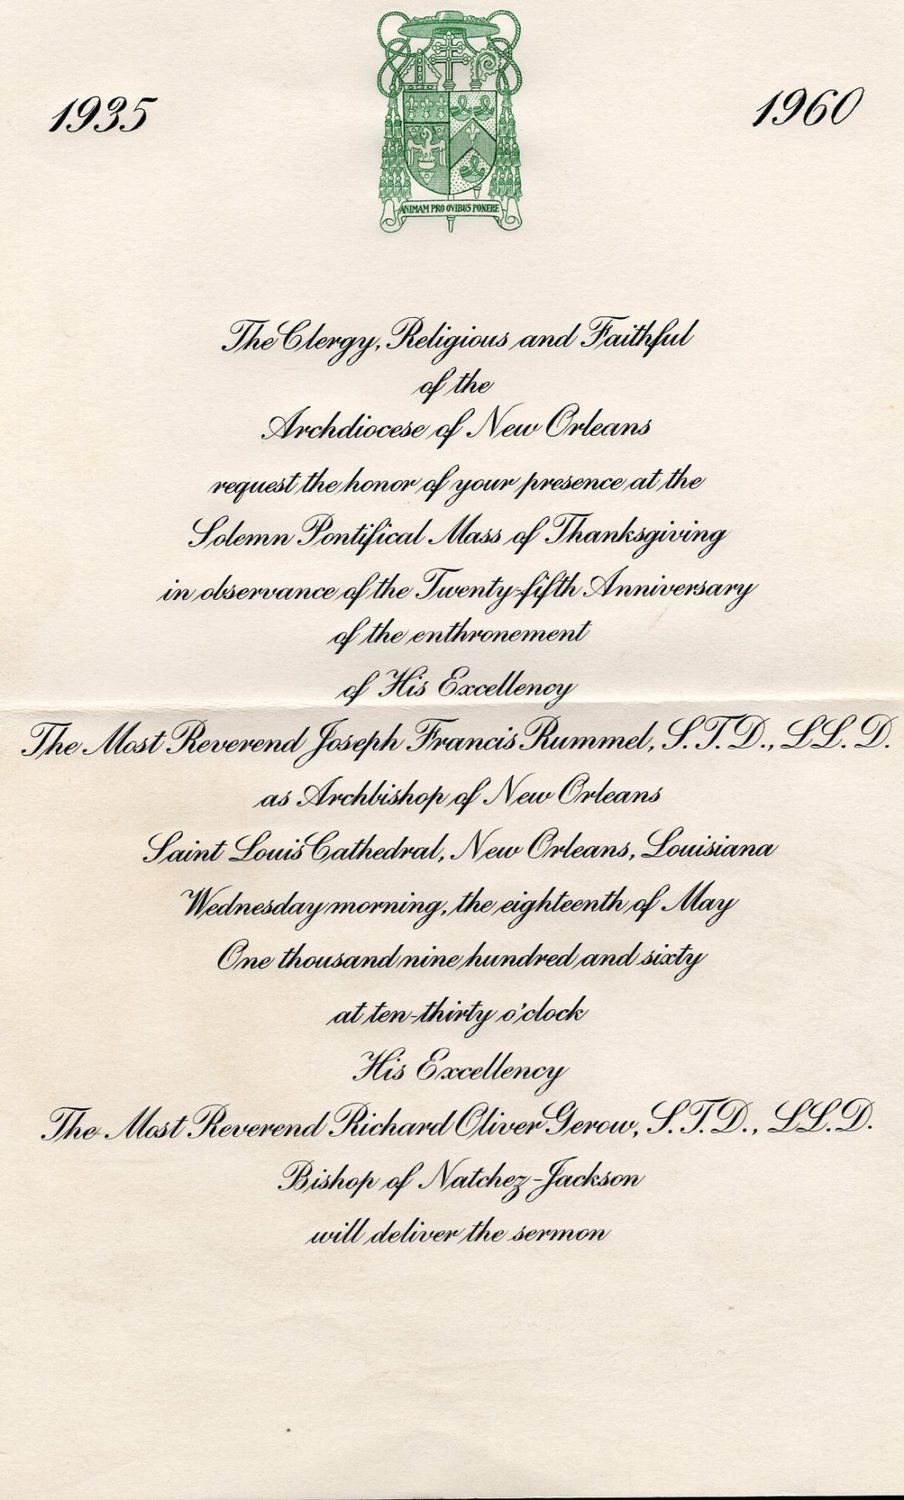 1935
1960
ANIMAM PRO OVIBUS PONERE
The Clergy, Religious and Faithful
of the
Archdiocese of New Orleans
request the honor of your presence at the
Solemn Pontifical Mass of Thanksgiving
in observance of the Twenty-fifth Anniversary
of the enthronement
of His Excellency
The Most Reverend Joseph Francis Rummel, S.T.D., LL.D.
as Archbishop of New Orleans
Saint Louis Cathedral, New Orleans, Louisiana
Wednesday morning, the eighteenth of May
One thousand nine hundred and sixty
at ten-thirty o'clock
His Excellency
The Most Reverend Richard Oliver Gerow, S.T.D., LL.D.
Bishop of Natchez-Jackson
will deliver the sermon